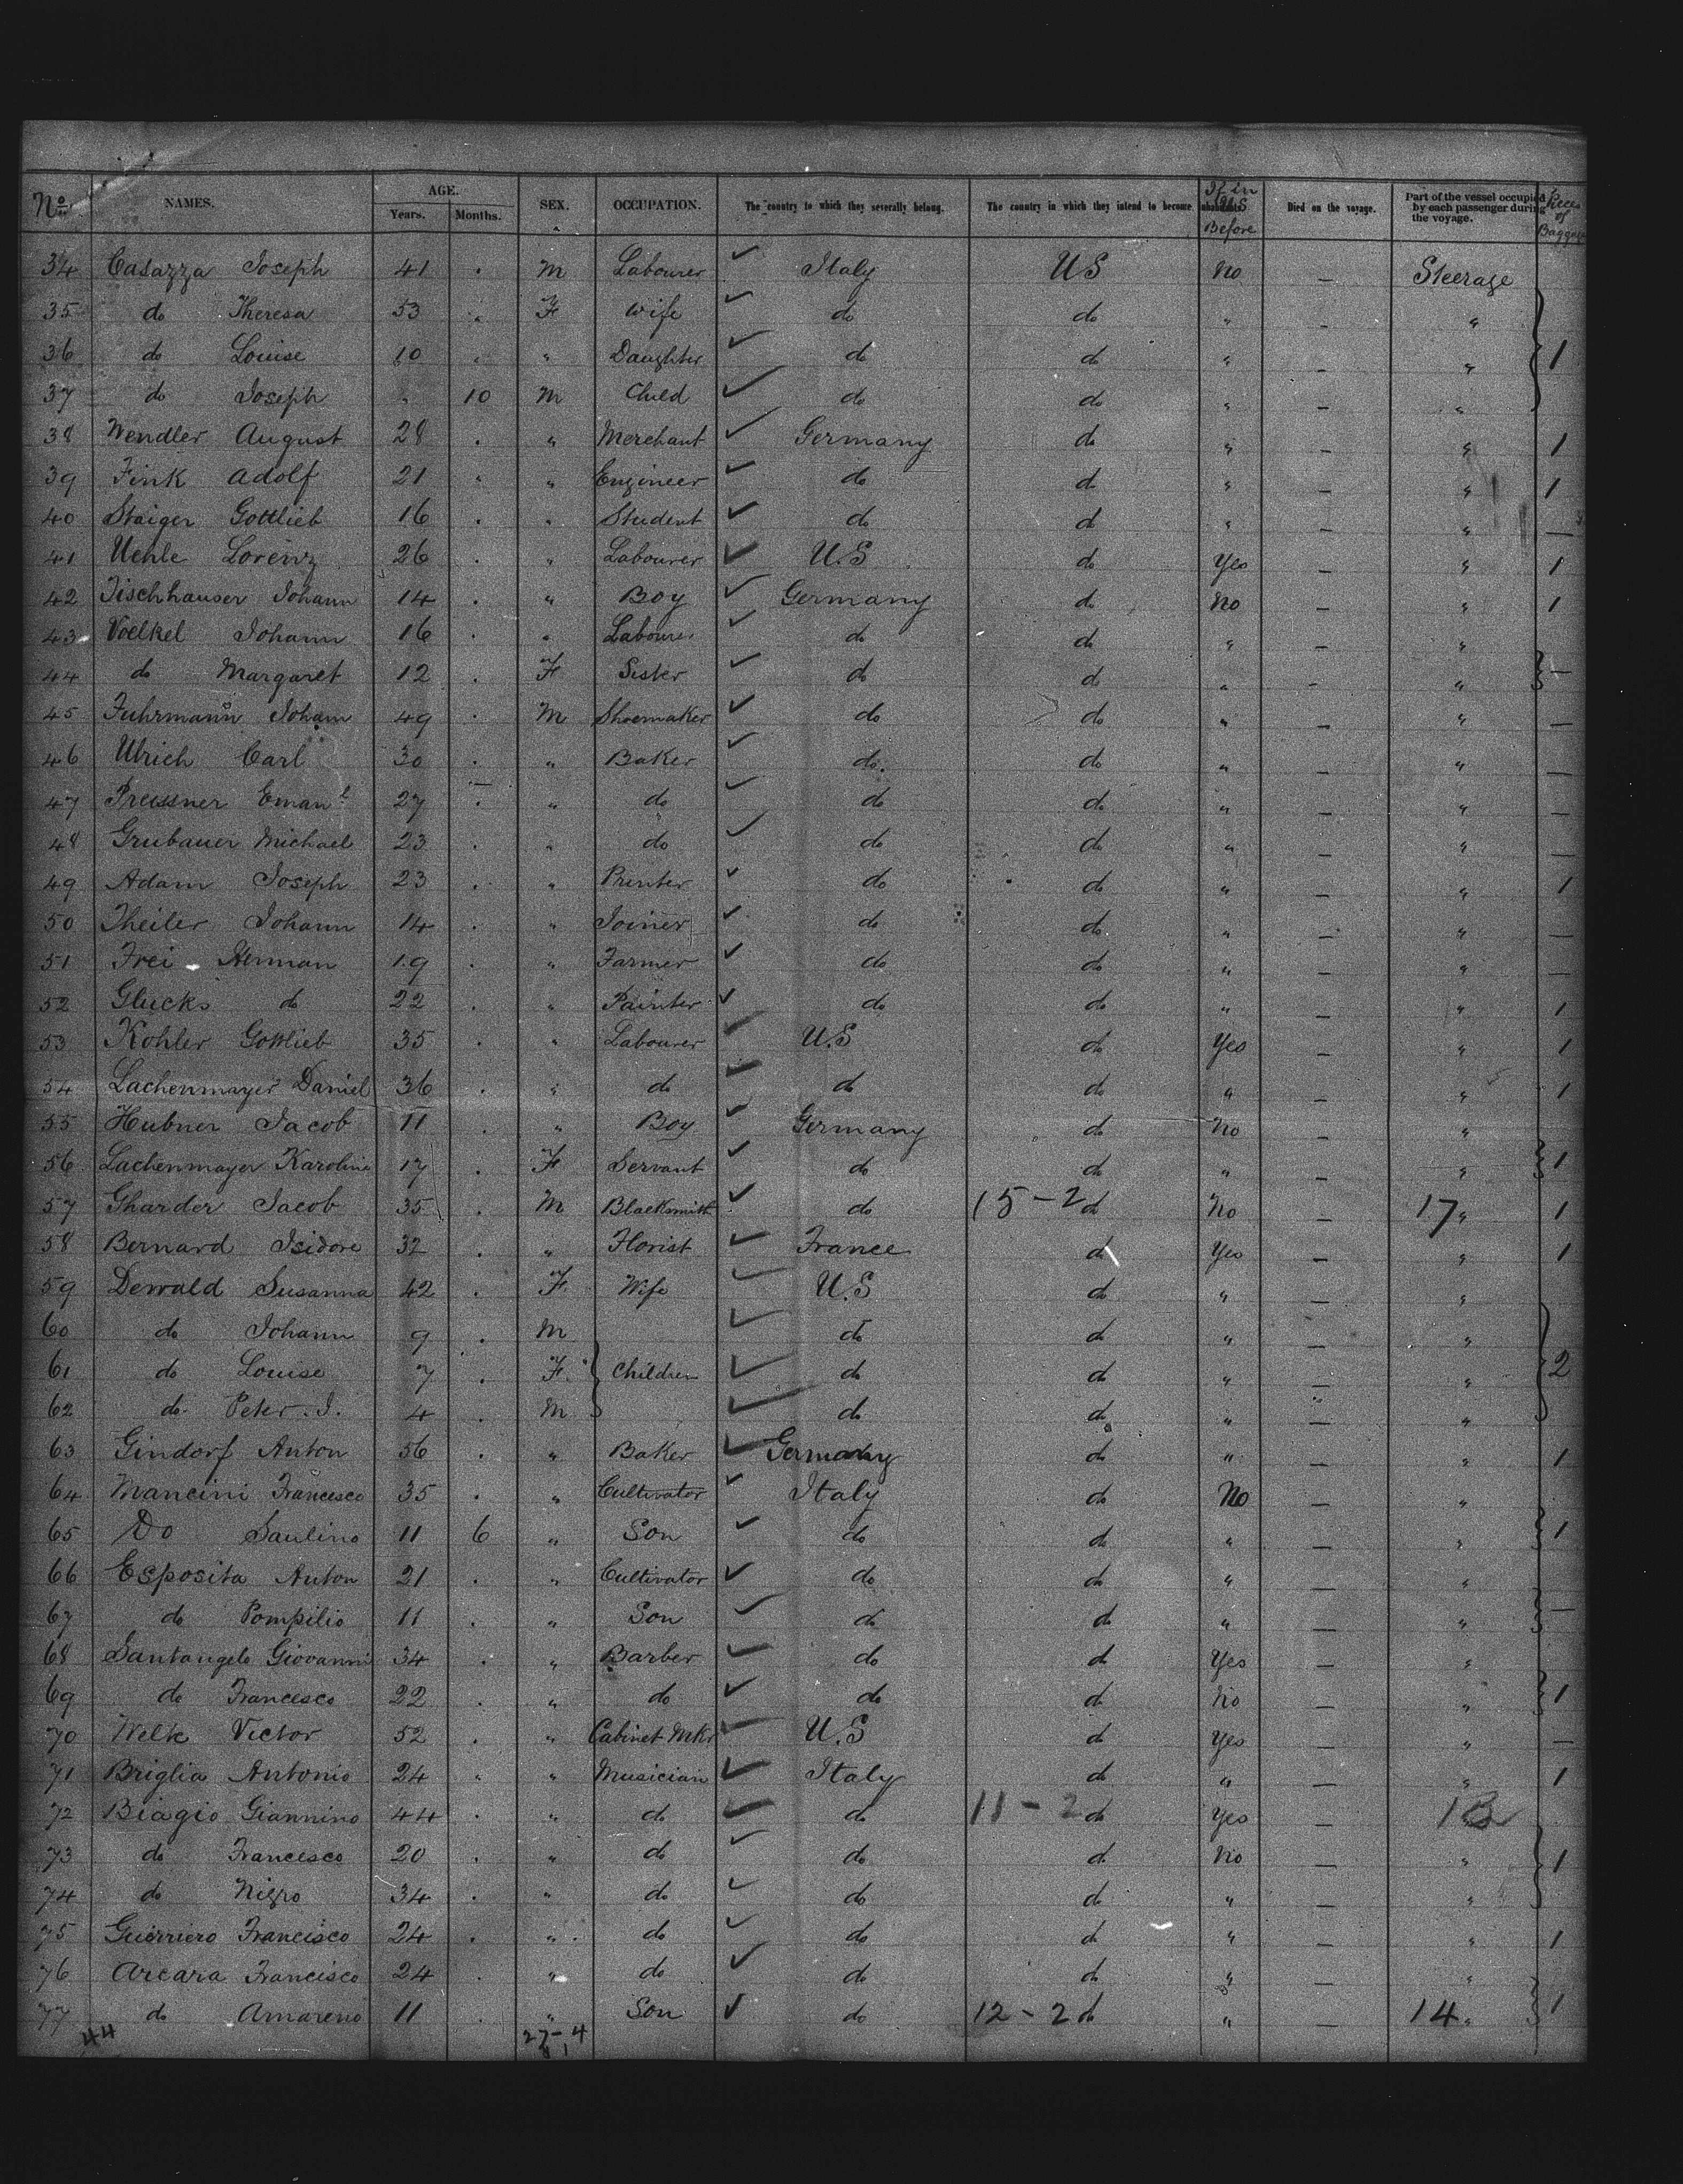 No NAMES. AGE. Years. Months. SEX. OCCUPATION. The country to which they severally belong. The country in which they intend to become inhabitants. If in U.S Before Died on the voyage. Part of the vessel occupied by each passenger during the voyage. Pieces of Baggage
34 Casazza Joseph 41 . M Labourer ✓ Italy US No – Steerage
35 do Theresa 53 " F Wife ✓ do do " – "
36 do Louise 10 " " Daughter ✓ do do " – " 1
37 do Joseph " 10 M Child ✓ do do " – "
38 Wendler August 28 . " Merchant ✓ Germany do " – " 1
39 Fink Adolf 21 " " Engineer ✓ do do " – " 1
40 Staiger Gottlieb 16 . " Student ✓ do do " – " –
41 Uehle Lorenz 26 . " Labourer ✓ U.S do Yes – " 1
42 Tischhauser Johann 14 . " Boy ✓ Germany do No – " 1
43 Voelkel Johann 16 . " Labourer ✓ do do " – "
44 do Margaret 12 . F Sister ✓ do do " – " –
45 Fuhrmann Johann 49 . M Shoemaker ✓ do do " – " –
46 Ulrich Carl 30 . " Baker ✓ do do " – " –
47 Preussner Emanl 27 . " do ✓ do do " – " –
48 Grubauer Michael 23 . " do ✓ do do " – " –
49 Adam Joseph 23 . " Printer ✓ do do " – " 1
50 Theiler Johann 14 . " Joiner ✓ do do " – " –
51 Frei Herman 19 . " Farmer ✓ do do " – " –
52 Glucks do 22 . " Painter ✓ do do " – " 1
53 Kohler Gottlieb 35 . " Labourer ✓ U.S do Yes – " 1
54 Lachenmayer Daniel 36 . " do ✓ do do " – " 1
55 Hubner Jacob 11 . " Boy ✓ Germany do No – "
56 Lachenmayer Karoline 17 . F Servant ✓ do do " – " 1
57 Gharder Jacob 35 . M Blacksmith ✓ do 15-2 do No – 17 " 1
58 Bernard Isidore 32 . " Florist ✓ France do Yes – " 1
59 Dewald Susanna 42 . F Wife ✓ U.S do " – "
60 do Johann 9 . M ✓ do do " – "
61 do Louise 7 . F Children ✓ do do " – " 2
62 do Peter. J. 4 . M ✓ do do " – "
63 Gindorf Anton 56 . " Baker ✓ Germany do " – " 1
64 Mancini Francesco 35 . " Cultivator ✓ Italy do No – "
65 Do Saulino 11 6 " Son ✓ do do " – " 1
66 Esposita Anton 21 . " Cultivator ✓ do do " – "
67 do Pompilio 11 . " Son ✓ do do " – " –
68 Santangelo Giovanni 34 . " Barber ✓ do do Yes – "
69 do Francesco 22 . " do ✓ do do No – " 1
70 Welk Victor 52 . " Cabinet Mkr ✓ U.S do Yes – " –
71 Briglia Antonio 24 . " Musician ✓ Italy do " – " 1
72 Biagio Giannino 44 . " do ✓ do 11-2 do Yes – 13
73 do Francesco 20 . " do ✓ do do No – " 1
74 do Nigro 34 . " do ✓ do do " – "
75 Guerriero Francisco 24 . " do ✓ do do " – " 1
76 Arcara Francisco 24 . " do ✓ do do " – "
77 do Amareno 11 . " Son ✓ do 12-2 do " – 14 " 1
44 27-4